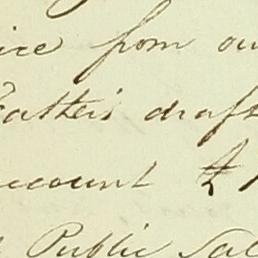 ice from ou
Father's draft
ccount £ 1
Public Sal